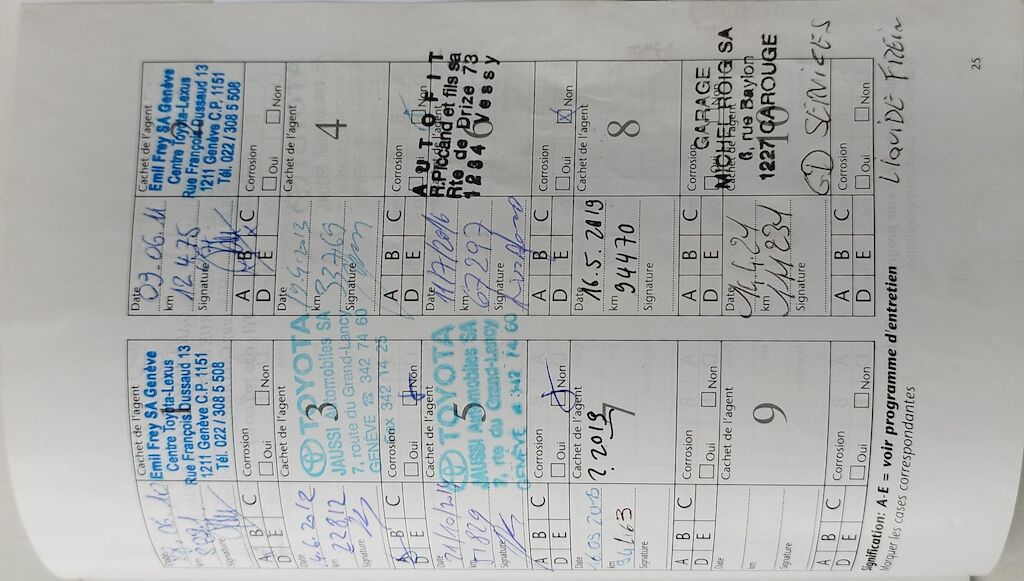 Cachet de l'agent
Emil Frey SA Genève
Centre Toyota-Lexus
Rue François Dussaud 13
1211 Genève C.P. 1151
Tél. 022 / 308 5 508
km
Signature
A B C
D E
Corrosion
Oui Non
Date 09.06.11
km 12 475
Signature
Cachet de l'agent
Emil Frey SA Genève
Centre Toyota-Lexus
Rue François Dussaud 13
1211 Genève C.P. 1151
Tél. 022 / 308 5 508
A B C
D E
Corrosion
Oui Non
Date 4.6.2012
km 22812
Signature
Cachet de l'agent
3
TOYOTA
JAUSSI Automobiles SA
7, route du Grand-Lancy
GENÈVE ☎ 342 74 60
Fax 342 14 25
A B C
D E
Corrosion
Oui Non
Date
km 33769
Signature
Cachet de l'agent
4
A B C
D E
Corrosion
Oui Non
km 51829
Signature
Cachet de l'agent
5
TOYOTA
JAUSSI Automobiles SA
7, rte du Grand-Lancy
GENÈVE
A B C
D E
Corrosion
Oui Non
Date 11/7/2016
km 67297
Signature
6
AUTOFIT
R.Piccand et fils sa
Rte de Drize 73
1234 Vessy
A B C
D E
Corrosion
Oui Non
Date
km
Signature
Cachet de l'agent
? 2019
7
A B C
D E
Corrosion
Oui Non
Date 16.5.2019
km 94470
Signature
Cachet de l'agent
8
A B C
D E
Corrosion
Oui Non
Date
km
Signature
Cachet de l'agent
9
A B C
D E
Corrosion
Oui Non
Date 14.4.24
km 111234
Signature
10
GARAGE
MICHEL ROHRIG SA
6, rue Baylon
1227 CAROUGE
GD SERVICES
A B C
D E
Corrosion
Oui Non
LIQUIDE FREIN
Signification: A-E = voir programme d'entretien
Marquer les cases correspondantes
25